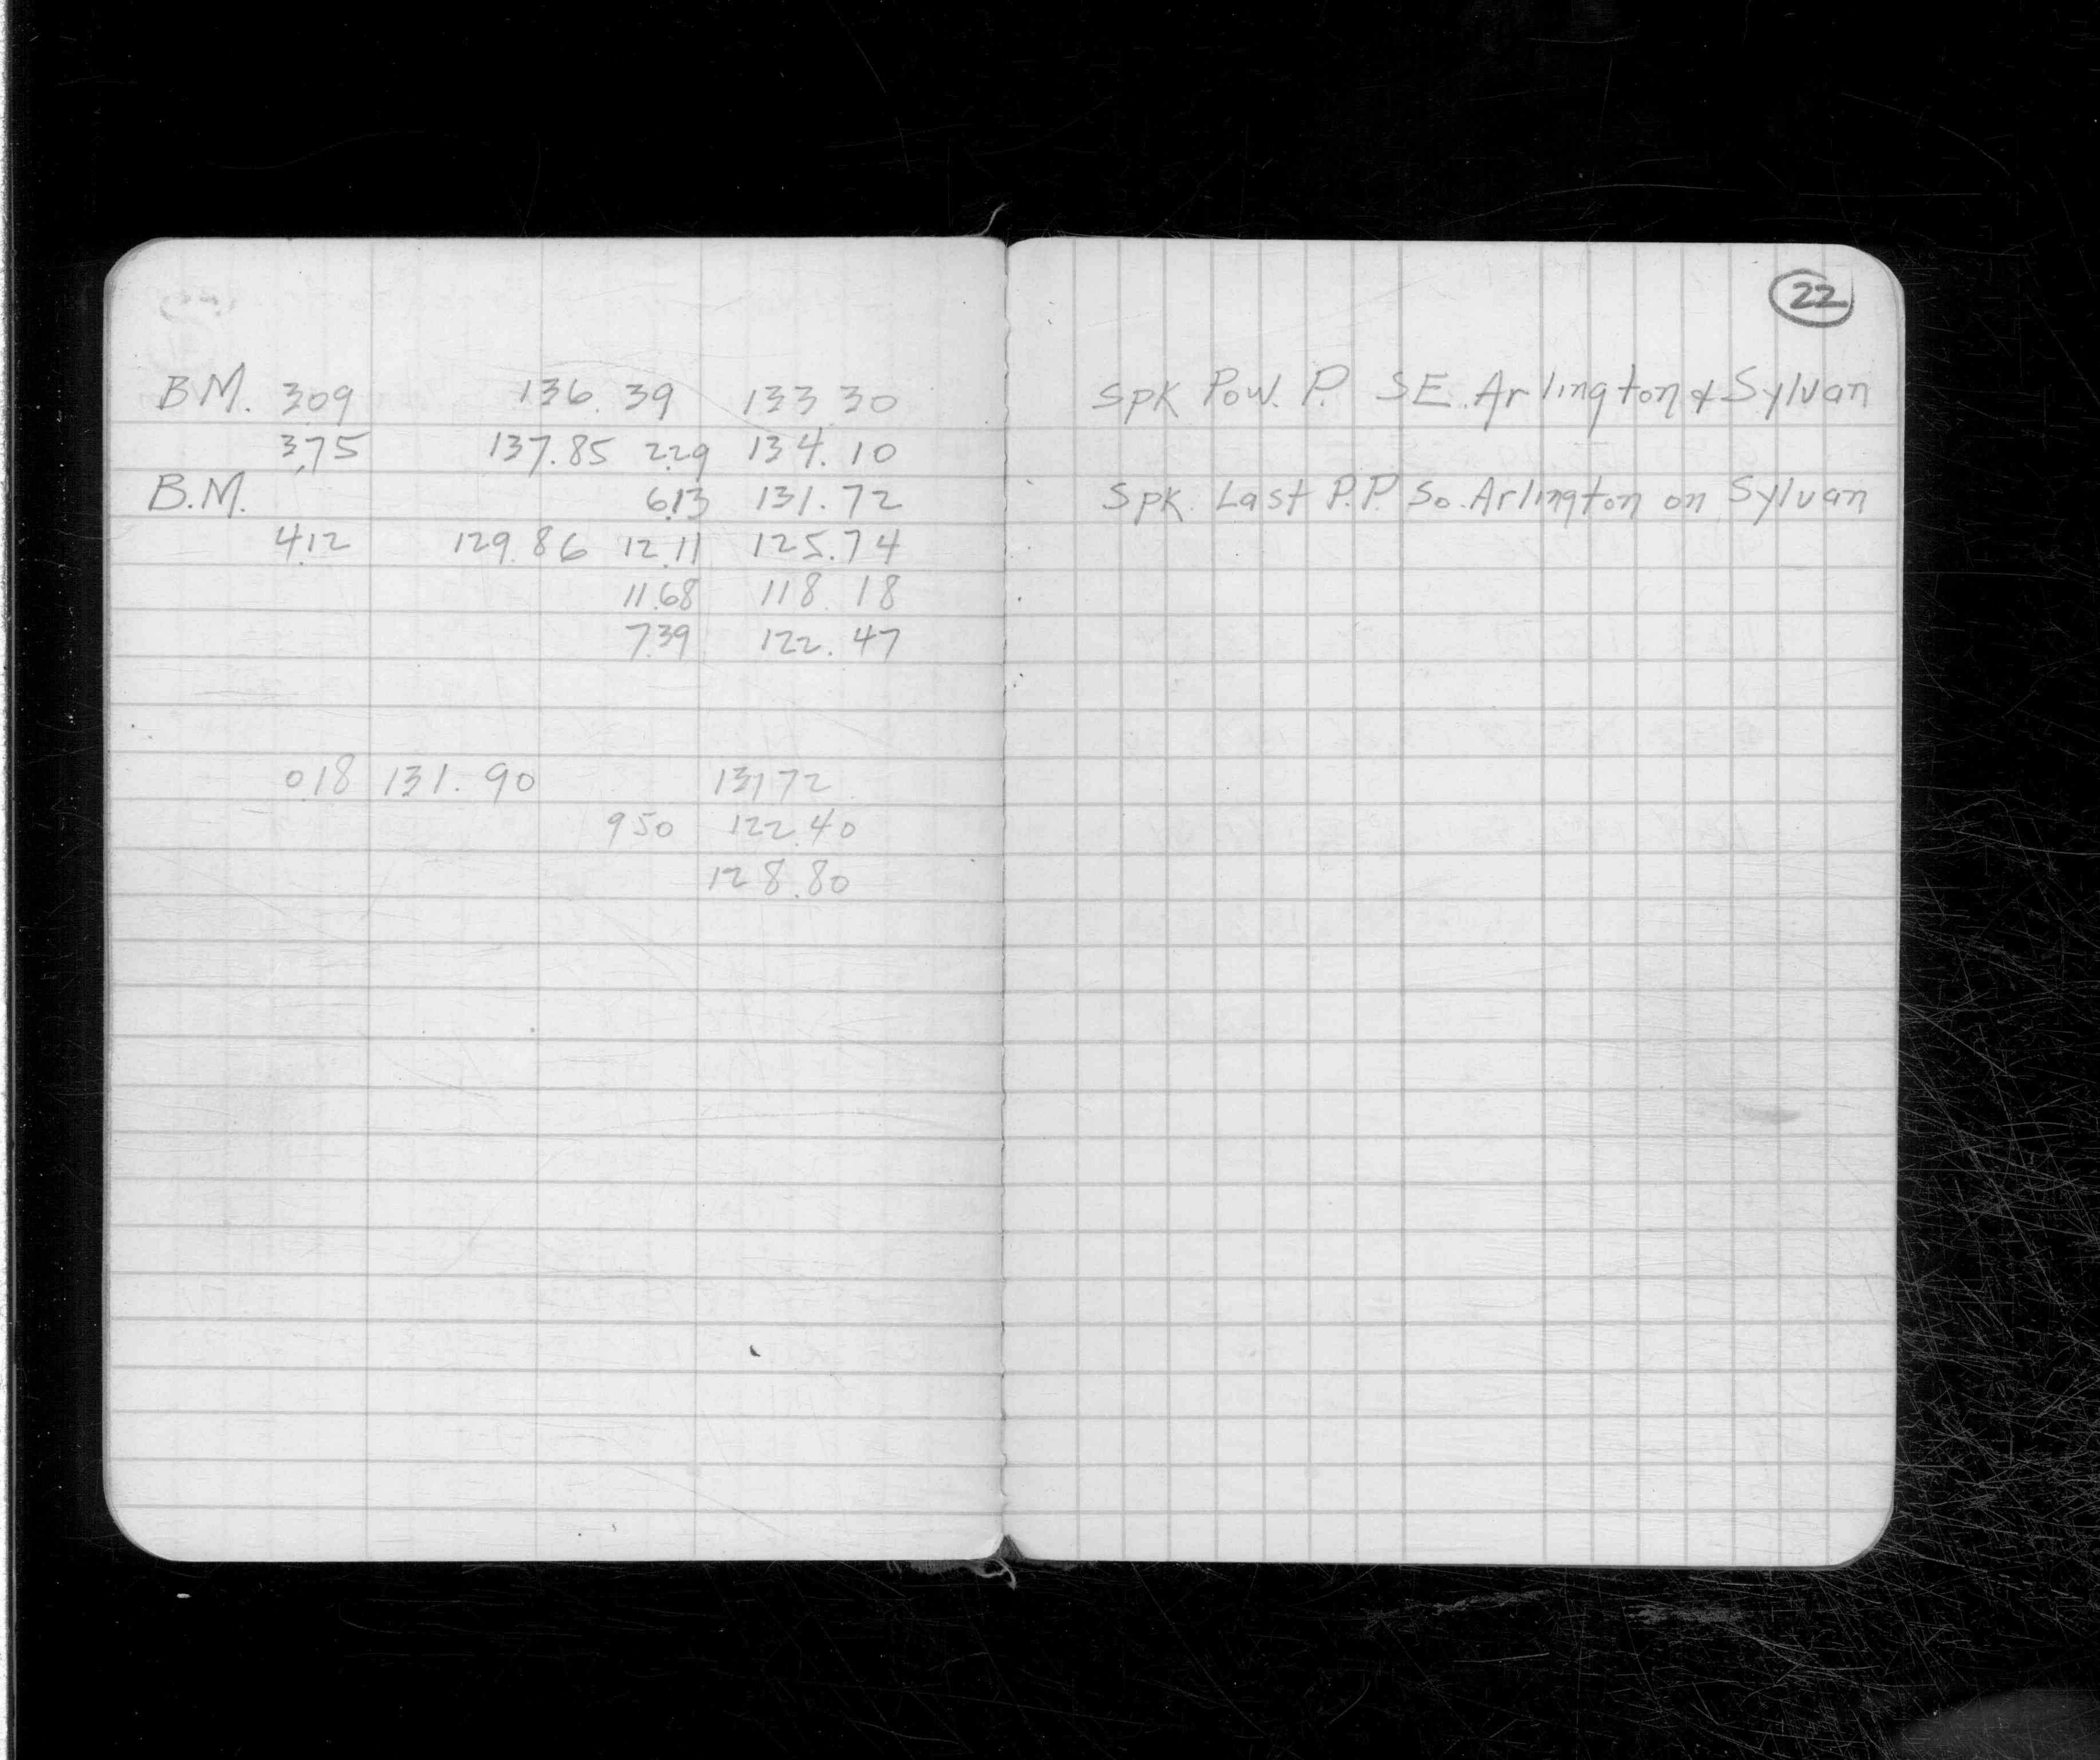 22
B.M. 3.09 136.39 133.30 Spk Pow. P. SE. Arlington & Sylvan
3.75 137.85 2.29 134.10
B.M. 6.13 131.72 Spk. Last P.P. So. Arlington on Sylvan
4.12 129.86 12.11 125.74
11.68 118.18
7.39 122.47
0.18 131.90 131.72
9.50 122.40
128.80